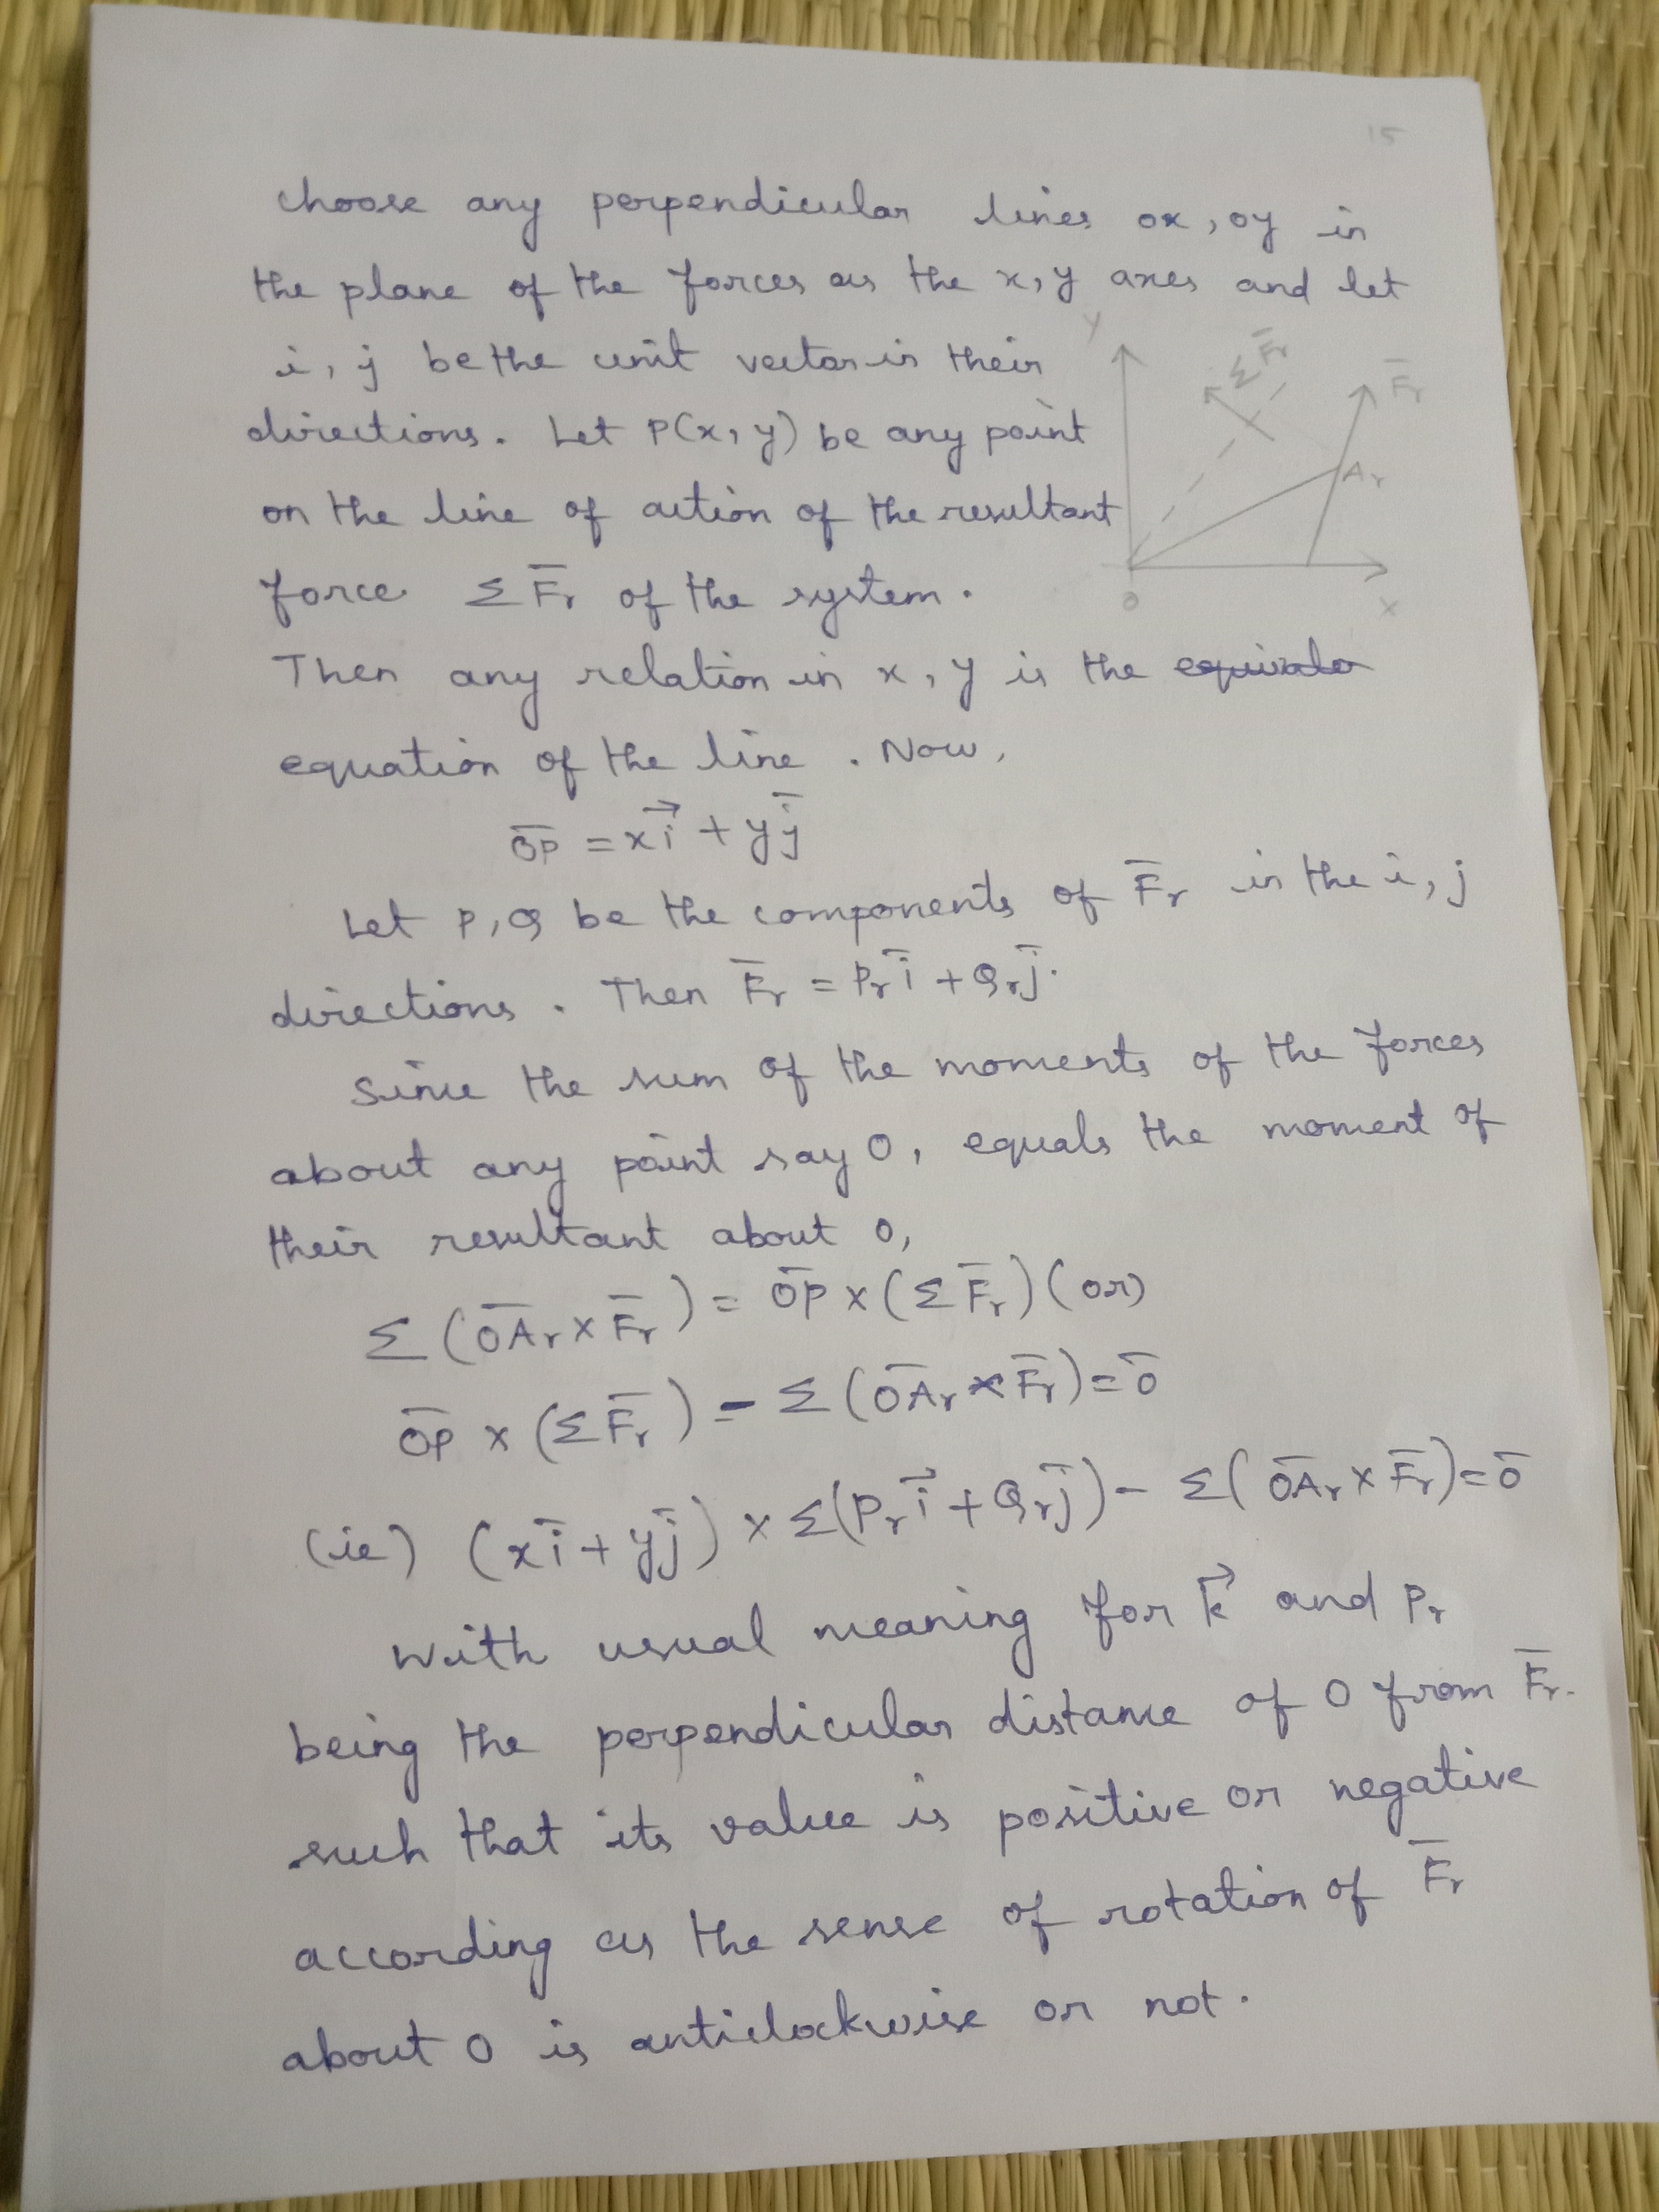 15
choose any perpendicular lines ox, oy in
the plane of the forces as the x, y axes and let
i, j be the unit vector in their
directions. Let P(x, y) be any point
on the line of action of the resultant
force Σ F̅r of the system.
Y
Σ F̅r
F̅r
Ar
O
X
Then any relation in x, y is the equivale
equation of the line. Now,
O̅P̅ = x i⃗ + y j̅
Let P, Q be the components of F̅r in the i, j
directions. Then F̅r = Pr i̅ + Qr j̅.
Since the sum of the moments of the forces
about any point say O, equals the moment of
their resultant about O,
Σ (O̅A̅r × F̅r) = O̅P̅ × (Σ F̅r) (or)
O̅P̅ × (Σ F̅r) - Σ (O̅A̅r × F̅r) = 0̅
(ie) (x i̅ + y j̅) × Σ(Pr i⃗ + Qr j̅) - Σ( O̅A̅r × F̅r) = 0̅
With usual meaning for k⃗ and Pr
being the perpendicular distance of O from F̅r.
such that its value is positive or negative
according as the sense of rotation of F̅r
about O is anticlockwise or not.